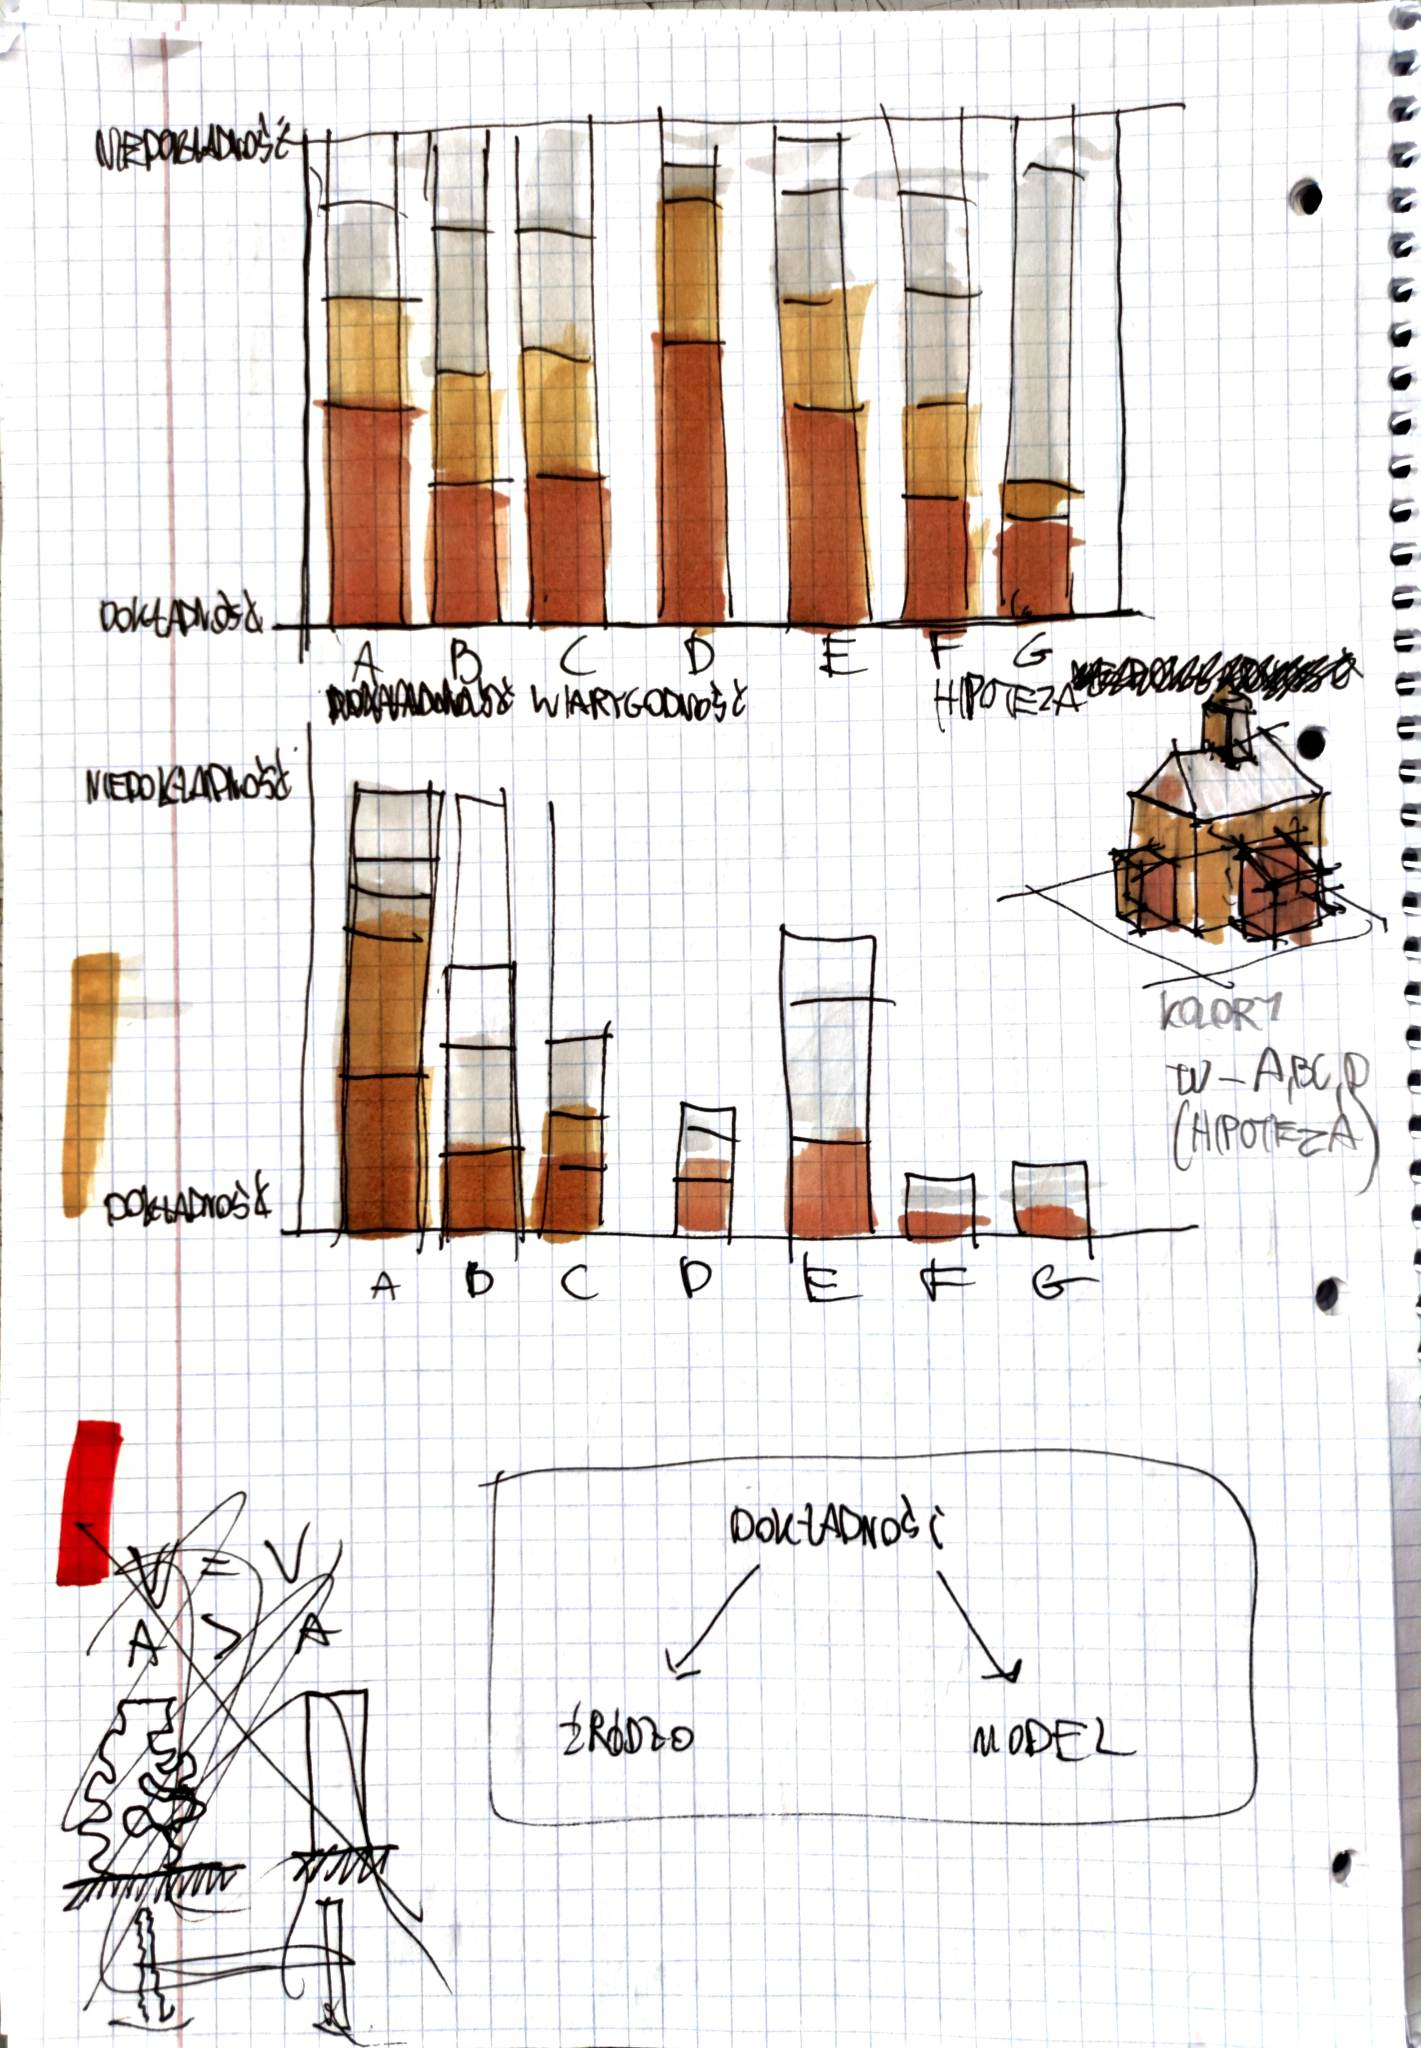 NIEDOKŁADNOŚĆ
DOKŁADNOŚĆ
A B C D E F G
WIARYGODNOŚĆ HIPOTEZA
NIEDOKŁADNOŚĆ
DOKŁADNOŚĆ
A B C D E F G
KOLORY
W - A,B,C,D
(HIPOTEZA)
V = V
A > A
DOKŁADNOŚĆ
ŹRÓDŁO MODEL